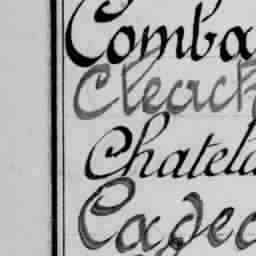 Comba
Cleack
Chatela
Cadeo